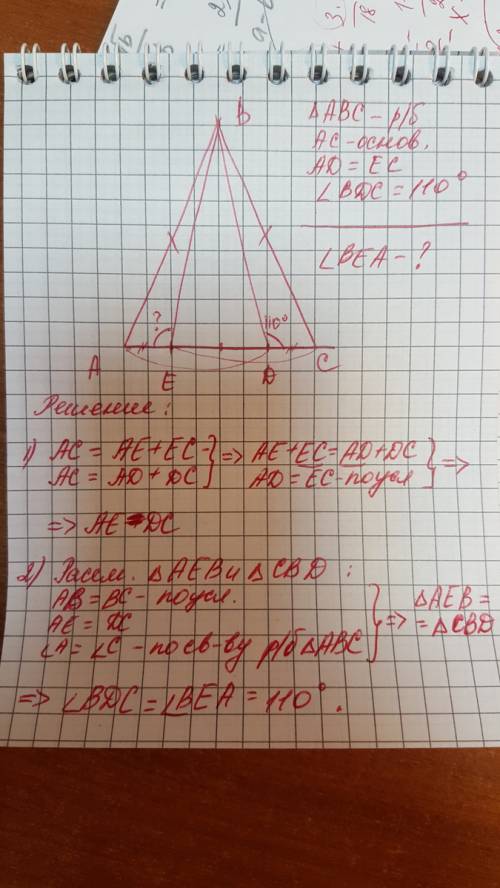 B
ΔABC - р/б
AC - основ.
AD = EC
∠BDC = 110°
∠BEA - ?
?
110°
A
E
D
C
Решение:
1) AC = AE + EC
AC = AD + DC } => AE + EC = AD + DC
AD = EC - по усл } =>
=> AE = DC
2) Рассм. ΔAEB и ΔCBD :
AB = BC - по усл.
AE = DC
∠A = ∠C - по св-ву р/б ΔABC } => ΔAEB =
= ΔCBD
=> ∠BDC = ∠BEA = 110°.